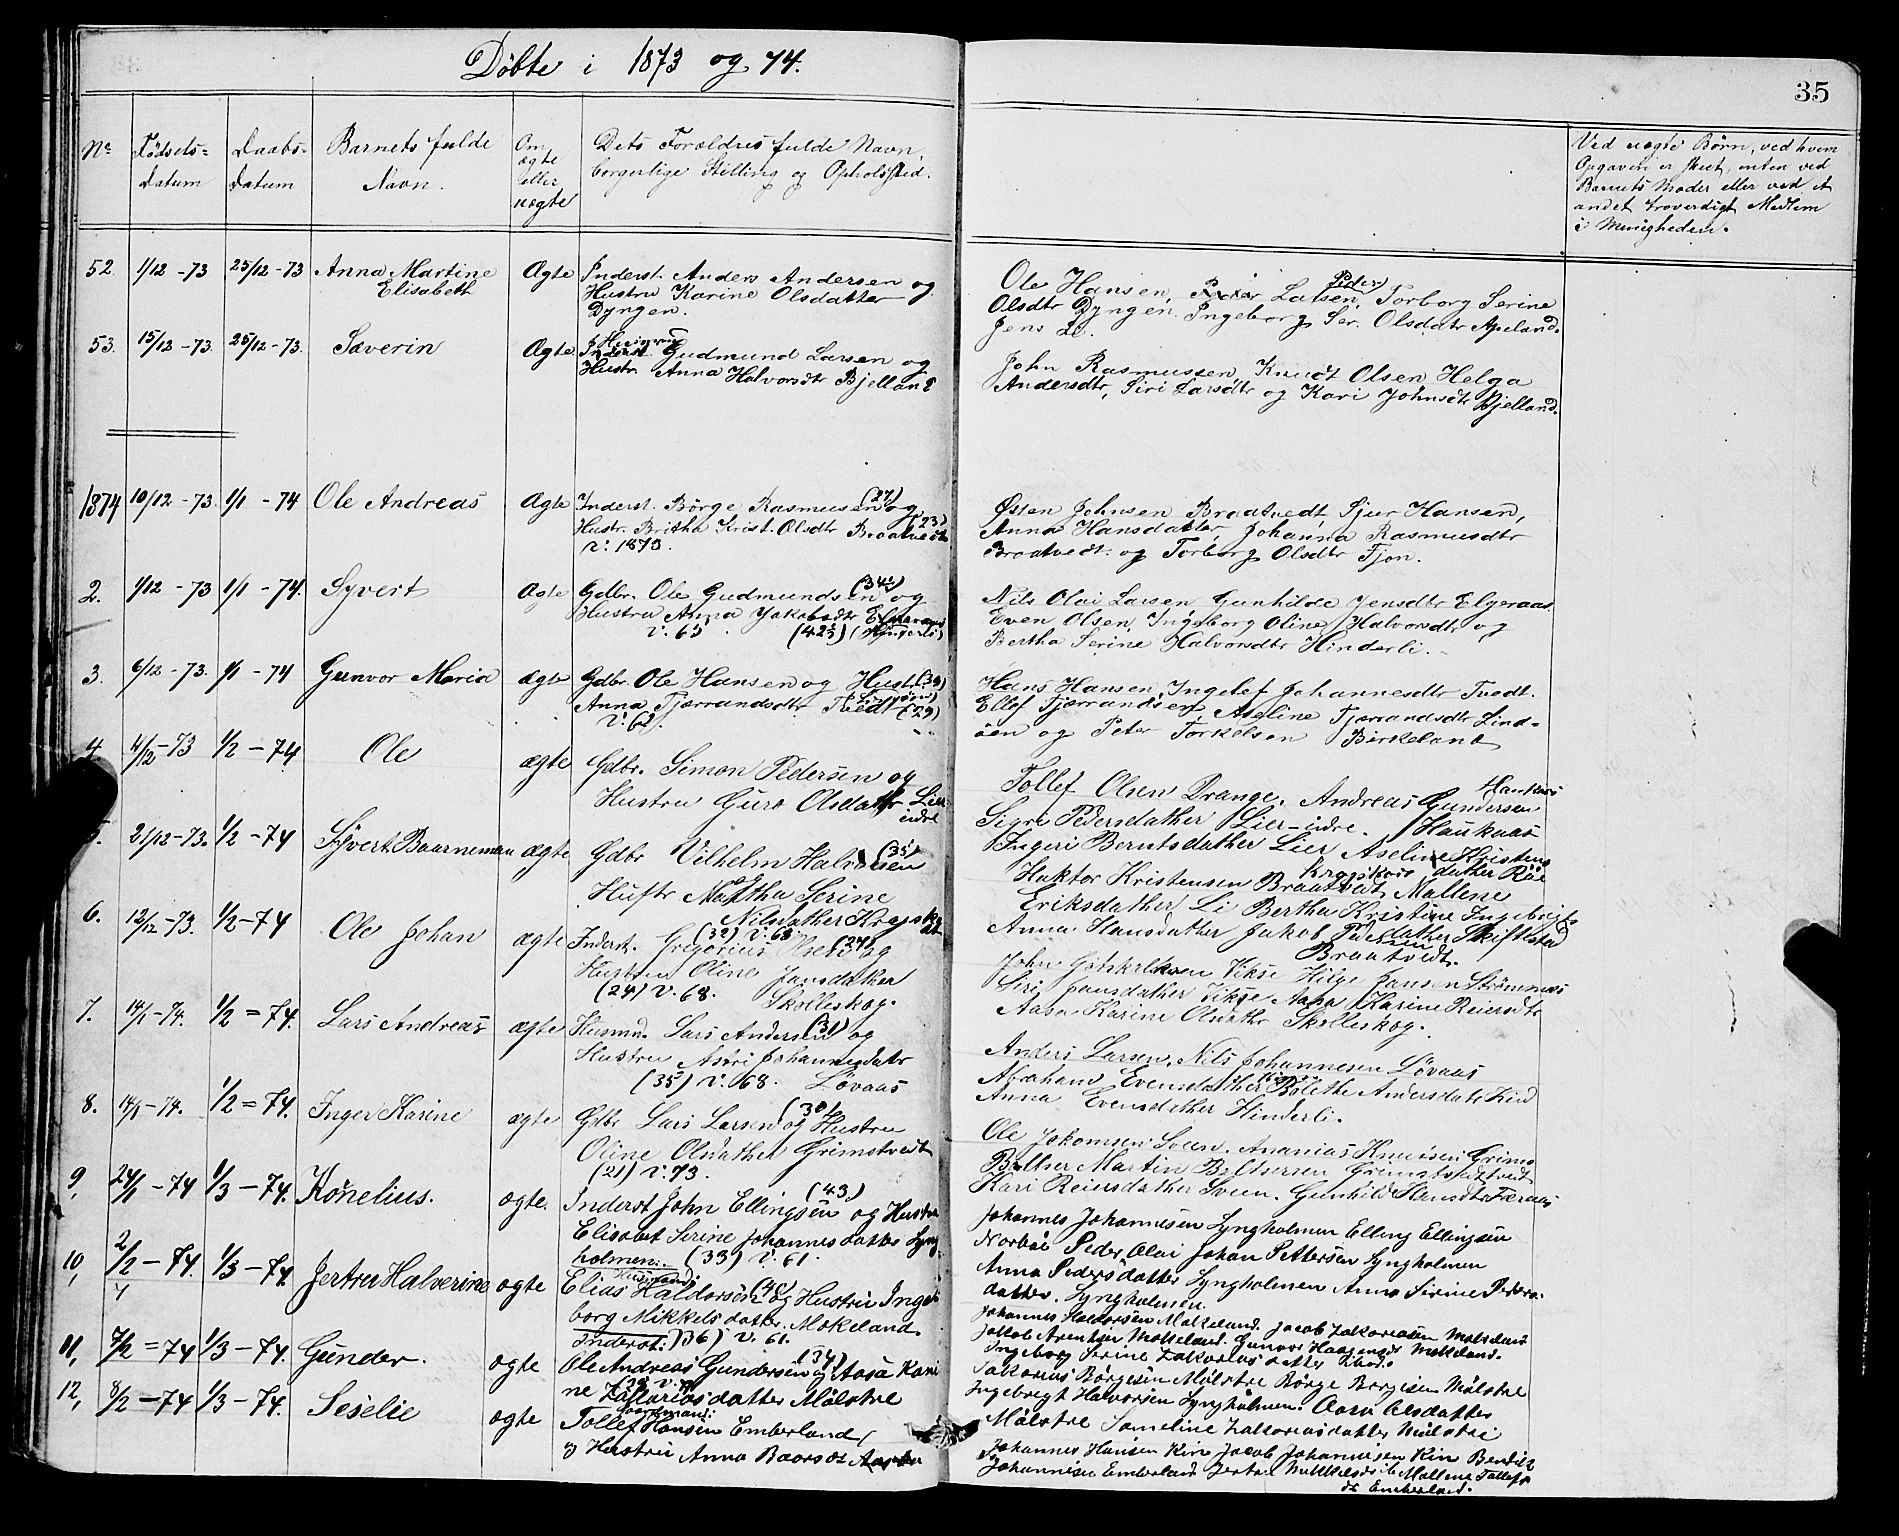 Döbte i 1873 og 74.
35
No
Födsels-
datum
Daabs-
datum
Barnets fulde
Navn.
Om
ægte
eller
uægte
Dets Forældres fulde Navn,
borgerlige Stilling og Opholssted.
Ved uægte Börn, ved hvem
Opgaven er skeet, enten ved
Barnets Moder eller ved et
andet troverdigt Medlem
i Menigheden.
52. 1/12 -73 25/12 -73 Anna Martine
Elisabeth
Ægte Inderst. Anders Andersen og
Hustru Karine Olsdatter
Dyngen.
Ole Hansen, Peder Larsen, Torborg Serine
Olsdtr Dyngen. Ingeborg Ser. Olsdatr Apeland.
Jens Li.
53. 15/12 -73. 25/12 -73. Saverin
Ægte Inderst. Gudmund Larsen og
Hustr. Anna Halvorsdtr Bjelland
John Rasmussen, Knudt Olsen, Helga
Andersdtr, Siri Larsdtr og Kari Johnsdtr Bjelland.
1874 10/12 -73. 1/1 -74 Ole Andreas
Ægte Inderst. Börge Rasmussen (27) og
Hustr. Britha Krist. Olsdtr Braatvedt (23)
v. 1873.
Østen Johnsen Braatvedt, Sjur Hansen,
Anna Hansdatter, Johanna Rasmusdtr
Braatvedt. og Torborg Olsdtr Fjon.
2. 1/12 -73 1/1 -74. Syvert
Ægte Gdbr. Ole Gudmundsen (34) og
Hustru Anna Jakobsdtr
v. 65 (42)
Nils Olai Larsen, Gunhilde Jensdtr Elgeraas
Even Olsen, Ingeborg Oline Halvorsdtr og
Bertha Serine Halvorsdtr Hinderli.
3. 6/12 -73. 1/1 -74 Gunvor Maria
ægte Gdbr. Ole Hansen og Hustr. (33)
Anna Tjærrandsdtr Tvedt (29)
v. 62.
Hans Hansen, Ingelef Johannesdtr Tvedt.
Ellef Tjærrandsen, Aseline Tjærrandsdtr Lind-
öen og Peter Torkelsen Birkeland
4. 4/12 -73 1/2 -74 Ole
ægte Gdbr. Simon Pedersen og
Hustru Guro Olsdatr Lier
indre
Tollef Olsen Drange. Andreas Gundersen
Sigri Pedersdatter Lier-indre. Haukaas
Ingeri Berntsdatter Lier
5. 21/12 -73. 1/2 -74 Syvert Baarneman
ægte Gdbr Vilhelm Halvorsen (35)
Hustr Martha Serine
Nilsdatter
(32) v. 68.
Aseline Kristens
datter Röe
Haktor Kristensen Braatvedt Mallene
Eriksdatter Li Bertha Kristine Ingebrigts
datter Skiftestad
Anna Hansdatter Jakob Pedersen
Braatvedt.
6. 12/12 -73. 1/2 -74 Ole Johan
ægte Inderst. Gregorius Olsen (24) og
Hustru Oline Jansdatter
(24) v. 68. Skolleskog.
John Gotskalksen Vikse Helge Jansen Strömnæs
Siri Jansdatter Vikse Aasa Karine Reiersdtr
Aasa Karine Olsdatr Skolleskog.
7. 14/1 -74. 1/2 = 74. Lars Andreas
ægte Husmd. Lars Andersen (31) og
Hustru Astri Johannesdatr
(35) v. 68. Lövaas
Anders Larsen, Nils Johannesen Lövaas
Abraham Evensdatter Bolethe Andersdatr Lind
Anna Evensdatter Hinderli.
8. 14/1 -74. 1/2 = 74. Inger Karine
ægte Gdbr Lars Larsen (30) og Hustru
Oline Olsdatter Grimstvedt
(21) v. 73.
Ole Jokomsen Sveen. Ananias Knudsen Grims
tvedt
Baltser Martin Baltsersen Grimstvedt
Kari Reiersdatter Sveen. Gunhild Hansdtr Færaas
9, 24/1 -74 1/3 -74. Kornelius.
ægte. Inderst John Ellingsen (43) og Hustru
Elisabet Serine Johannesdatter Lyng
holmen. (33) v. 61.
Johannes Johannesen Lyngholmen Elling Ellingsen
Norböe Peder Olai Johan Pettersen Lyngholmen
Anna Pedersdatter Lyngholmen Anna Sirine Peders
datter. Lyngholmen.
10, 2/2 -74. 1/3 -74. Jertru Halverine
ægte Husmand:
Elias Haldorsen (40) og Hustru Inge
borg Mikkelsdatter. Mokeland.
(36) v. 61.
Johannes Haldorsen Mokeland. Jacob Zakariasen Mokeland
Jakob Arentsen Mokeland. Gunvor Haagensdr Mokeland.
Ingeborg Serine Zakariasdatter
11, 7/2 = 74 1/3 -74. Gunder.
ægte Inderst:
Ole Andreas Gundersen (34) og Aasa Kari
ne Zakariasdatter Mölstre
Sakarius Börgesen Mölstre Börge Borgesen Mölstre
Ingebregt Halvorsen Lyngholmen. Aasa Olsdatter
Mölstre Sameline Zakariasdatter Mölstre
12, 8/2 -74 1/3 -74. Seselie
ægte Gaardmand:
Tollef Hansen Emberland
og Hustru Anna Baarsdr
Johannes Hansen Kin Jacob Johannesen Kin Bendik
Johannesen Emberland Jertru Mikkelsdr Mallene Tollefs
dr Emberland.